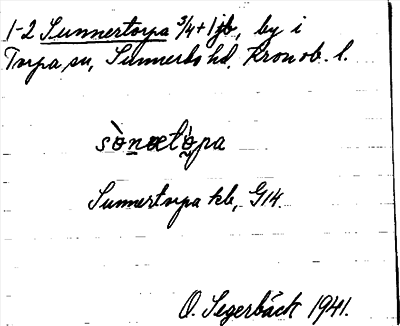 1-2 Sunnertorpa 3/4+1 jb, by i
Torpa sn, Sunnerbo hd, Kronob. l.
sònœtò̤pa
Sunnertorpa kb, G14
O. Segerbäck 1941.